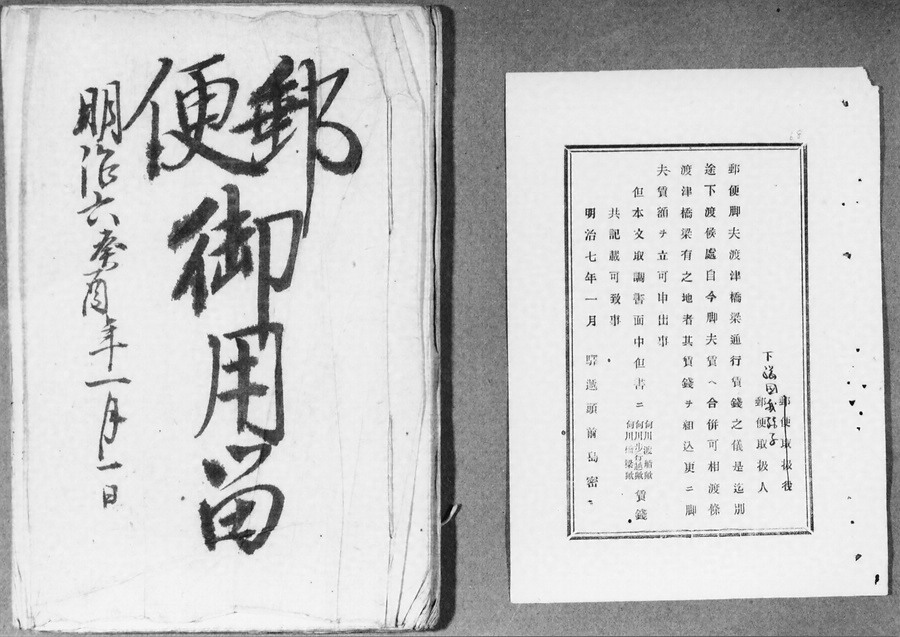 郵便
御用留
明治六癸酉年一月一日
郵便取扱役
下総国我孫子
郵便取扱人
郵便脚夫渡津橋梁通行賃錢之儀是迄別
途下渡候處自今脚夫賃ヘ合併可相渡條
渡津橋梁有之地者其賃錢ヲ組込更ニ脚
夫賃額ヲ立可申出事
但本文取調書面中但書ニ 何川渡船歟 何川歩行越歟 何川橋梁歟 賃錢
共記載可致事
明治七年一月 驛遞頭前島密